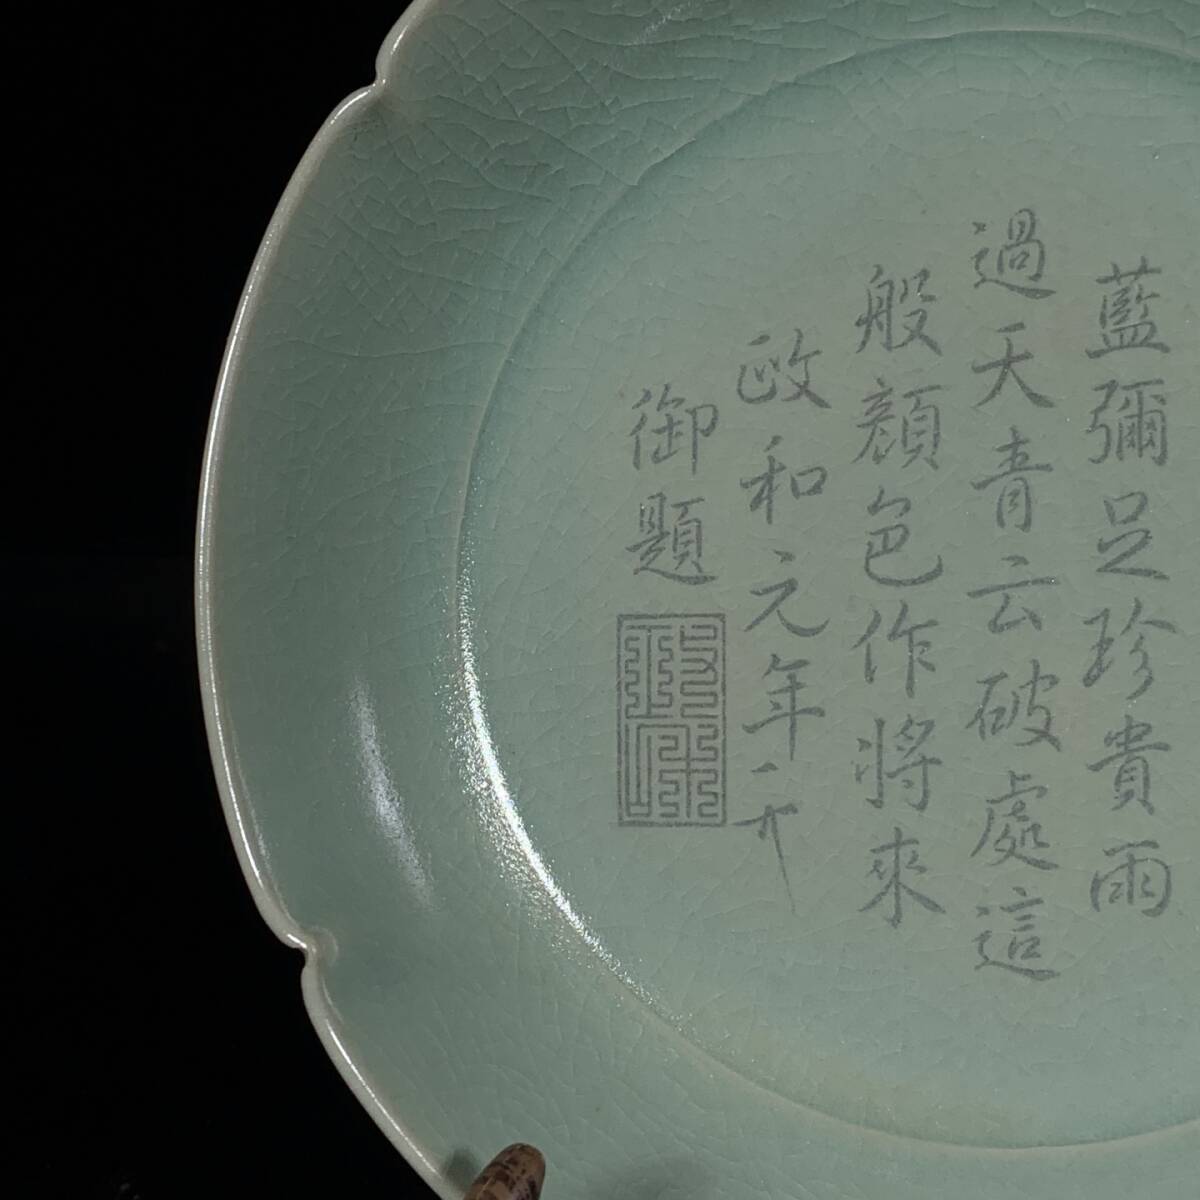 藍彌足珍貴雨
過天青云破處這
般顔色作將來
政和元年天
御題